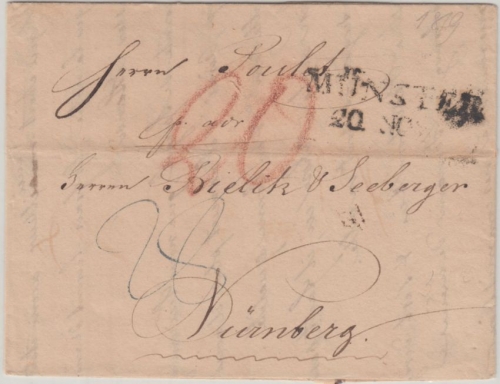 1829
Herrn Poult
MÜNSTER
20 NOV
p. adr
80
Herren Bielitz & Seeberger
Nürnberg.